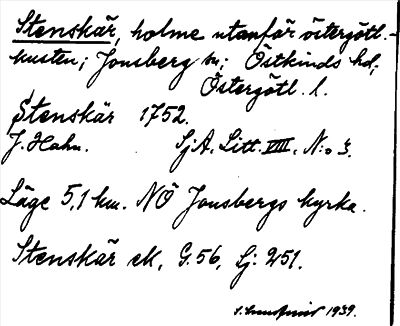 Stenskär, holme utanför östergötl.-
kusten; Jonsberg sn; Östkinds hd;
Östergötl. l.
Stenskär 1752.
J. Hahn. SjA. Litt. VIII, N:o 3.
Läge 5,1 km. NÖ Jonsbergs kyrka.
Stenskär ek, G. 56, Lj: 251.
1939.